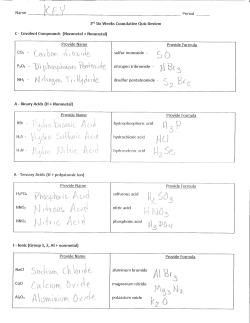 Name KEY Period
3rd Six Weeks Cumulative Quiz Review
C - Covalent Compounds (Nonmetal + Nonmetal)
Provide Name Provide Formula
CO₂ - Carbon Dioxide sulfur monoxide - SO
P₂O₅ - Diphosphorus Pentoxide nitrogen tribromide - NBr₃
NH₃ - Nitrogen TriHydride disulfur pentabromide - S₂Br₅
A - Binary Acids (H + Nonmetal)
Provide Name Provide Formula
HBr - Hydro bromic Acid hydrophosphoric acid H₃P
H₂S - Hydro Sulfuric Acid hydrochloric acid HCl
H₃N - Hydro Nitric Acid hydroselenic acid H₂Se
A - Ternary Acids (H + polyatomic ion)
Provide Name Provide Formula
H₃PO₄ Phosphoric Acid sulfurous acid H₂SO₃
HNO₂ Nitrous Acid nitric acid HNO₃
HNO₃ Nitric Acid phosphoric acid H₃PO₄
I - Ionic (Group 1, 2, Al + nonmetal)
Provide Name Provide Formula
NaCl Sodium Chloride aluminum bromide AlBr₃
CaO Calcium Oxide magnesium nitride Mg₃N₂
Al₂O₃ Aluminum Oxide potassium oxide K₂O